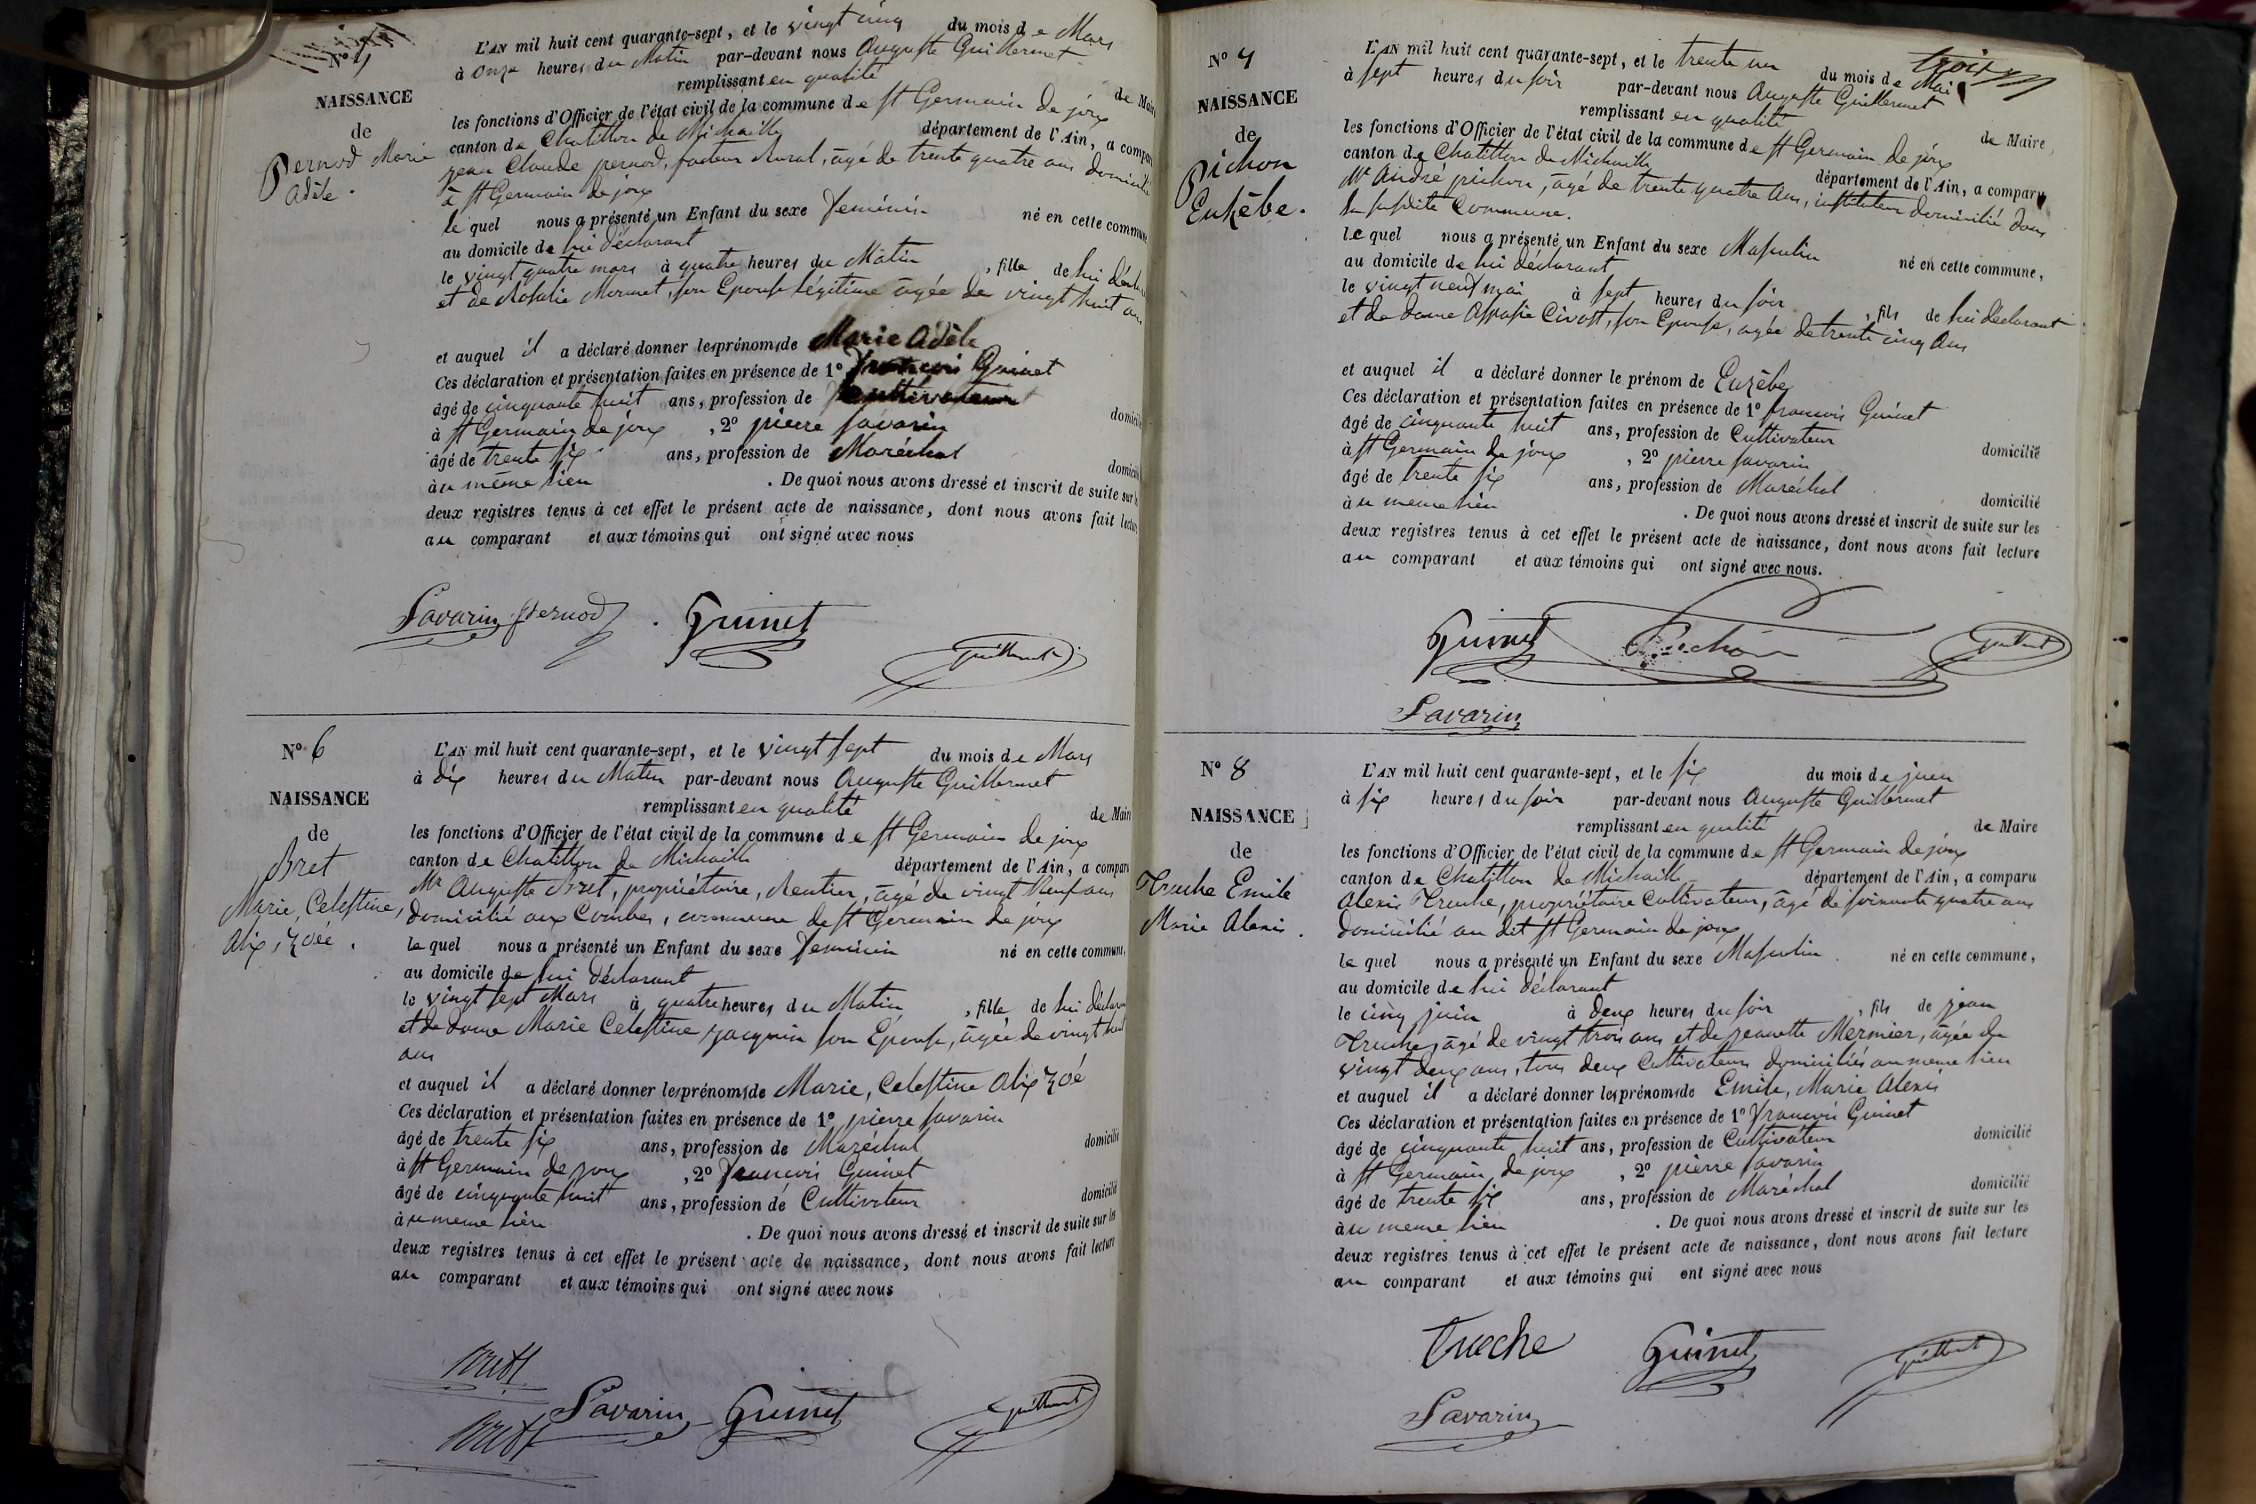 N° 5
NAISSANCE
de
Pernod Marie
Adèle.
L'AN mil huit cent quarante-sept, et le vingt cinq du mois de Mars
à onze heures du Matin par-devant nous Auguste Guillermet
remplissant en qualité de Maire
les fonctions d'Officier de l'état civil de la commune de St Germain de joux
canton de Chatillon de Michaille département de l'Ain, a comparu
jean Claude pernod, facteur Rural, âgé de trente quatre ans domicilié
à St Germain de joux
lequel nous a présenté un Enfant du sexe feminin né en cette commune
au domicile de lui déclarant
le vingt quatre mars à quatre heures du Matin, fille de lui déclarant
et de Rosalie Mermet, son Epouse légitime âgée de vingt huit ans
et auquel il a déclaré donner les prénoms de Marie Adèle
Ces déclaration et présentation faites en présence de 1° francois Guinet
âgé de cinquante huit ans, profession de cultivateur domicilié
à St Germain de joux, 2° pierre Savarin
âgé de trente six ans, profession de Maréchal domicilié
au même lieu. De quoi nous avons dressé et inscrit de suite sur les
deux registres tenus à cet effet le présent acte de naissance, dont nous avons fait lecture
au comparant et aux témoins qui ont signé avec nous
Savarin Pernod Guinet
Guillermet
N° 6
NAISSANCE
de
Bret
Marie, Celestine,
Alix, zoée.
L'AN mil huit cent quarante-sept, et le vingt sept du mois de Mars
à dix heures du Matin par-devant nous Auguste Guillermet
remplissant en qualité de Maire
les fonctions d'Officier de l'état civil de la commune de St Germain de joux
canton de Chatillon de Michaille département de l'Ain, a comparu
Mr Auguste Bret, propriétaire, Rentier, âgé de vingt neuf ans
domicilié aux Combes, commune de St Germain de joux
lequel nous a présenté un Enfant du sexe feminin né en cette commune,
au domicile de lui déclarant
le vingt sept Mars à quatre heures du Matin, fille de lui déclarant
et de dame Marie Celestine jacquin son Epouse, âgée de vingt huit
ans
et auquel il a déclaré donner les prénoms de Marie, Celestine Alix zoé
Ces déclaration et présentation faites en présence de 1° pierre Savarin
âgé de trente six ans, profession de Maréchal domicilié
à St Germain de joux, 2° francois Guinet
âgé de cinquante huit ans, profession de Cultivateur domicilié
au meme lieu. De quoi nous avons dressé et inscrit de suite sur les
deux registres tenus à cet effet le présent acte de naissance, dont nous avons fait lecture
au comparant et aux témoins qui ont signé avec nous
Bret
Bret Savarin Guinet Guillermet
trois
N° 7
NAISSANCE
de
Pichon
Euzèbe.
L'AN mil huit cent quarante-sept, et le trente un du mois de Mai
à sept heures du soir par-devant nous Auguste Guillermet
remplissant en qualité de Maire,
les fonctions d'Officier de l'état civil de la commune de St Germain de joux
canton de Chatillon de Michaille département de l'Ain, a comparu
Mr André pichon, âgé de trente quatre Ans, instituteur domicilié dans
la susdite Commune.
lequel nous a présenté un Enfant du sexe Masculin né en cette commune,
au domicile de lui déclarant
le vingt neuf mai à sept heures du soir, fils de lui déclarant
et de dame Aspasie Civost, son Epouse, agée de trente cinq Ans
et auquel il a déclaré donner le prénom de Euzèbe
Ces déclaration et présentation faites en présence de 1° francois Guinet
âgé de cinquante huit ans, profession de Cultivateur domicilié
à St Germain de joux, 2° pierre Savarin
âgé de trente six ans, profession de Maréchal domicilié
au meme lieu. De quoi nous avons dressé et inscrit de suite sur les
deux registres tenus à cet effet le présent acte de naissance, dont nous avons fait lecture
au comparant et aux témoins qui ont signé avec nous.
Guinet Pichon Guillermet
Savarin
N° 8
NAISSANCE
de
Truche Emile
Marie Alexis.
L'AN mil huit cent quarante-sept, et le six du mois de juin
à six heures du soir par-devant nous Auguste Guillermet
remplissant en qualité de Maire
les fonctions d'Officier de l'état civil de la commune de St Germain de joux
canton de Chatillon de Michaille département de l'Ain, a comparu
Alexis Truche, propriétaire Cultivateur, âgé de soixante quatre ans
domicilié au dit St Germain de joux
lequel nous a présenté un Enfant du sexe Masculin né en cette commune,
au domicile de lui déclarant
le cinq juin à deux heures du soir, fils de jean
Truche, âgé de vingt trois ans et de jeanette Mermier, âgée de
vingt deux ans, tous deux Cultivateurs domiciliés au meme lieu
et auquel il a déclaré donner les prénoms de Emile, Marie Alexis
Ces déclaration et présentation faites en présence de 1° francois Guinet
âgé de cinquante huit ans, profession de Cultivateur domicilié
à St Germain de joux, 2° pierre Savarin
âgé de trente six ans, profession de Maréchal domicilié
au meme lieu. De quoi nous avons dressé et inscrit de suite sur les
deux registres tenus à cet effet le présent acte de naissance, dont nous avons fait lecture
au comparant et aux témoins qui ont signé avec nous
Truche Guinet Guillermet
Savarin